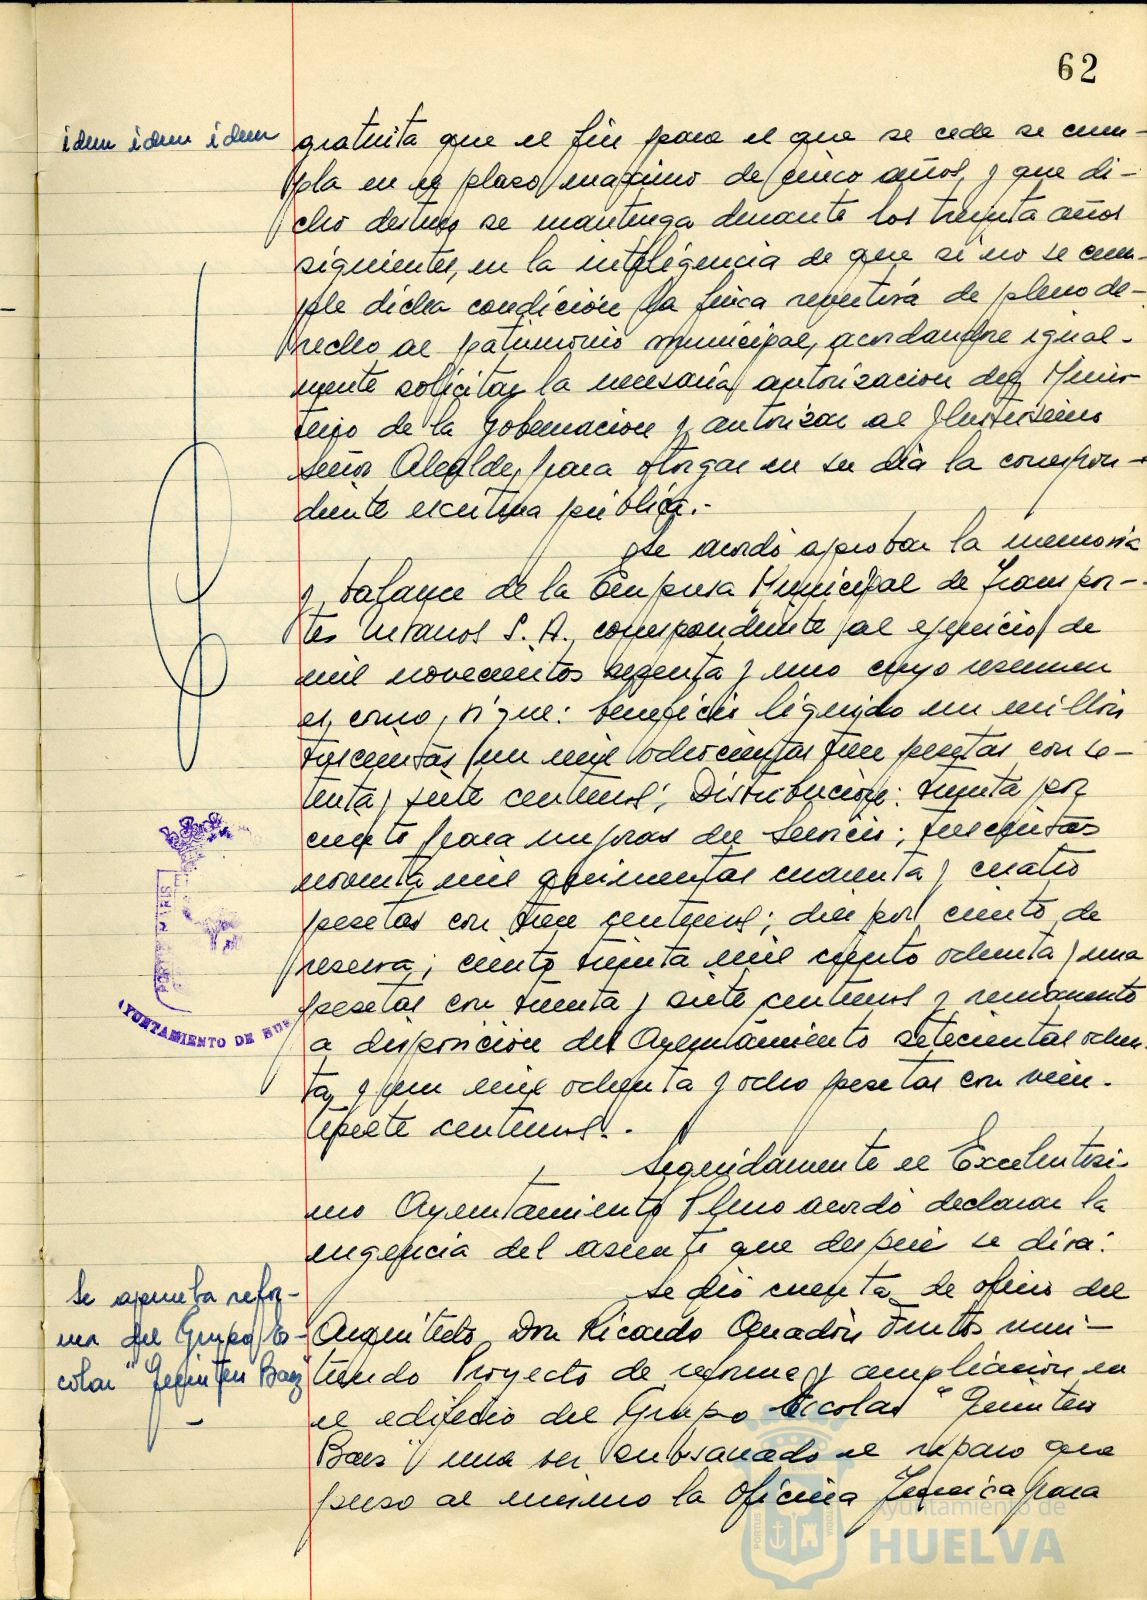 62
idem idem idem
gratuita que el fin para el que se cede se cum-
pla en el plazo maximo de cinco años, y que di-
cho destino se mantenga durante los treinta años
siguientes, en la inteligencia de que si no se cum-
ple dicha condición la finca revertirá de pleno de-
recho al patrimonio municipal, acordandose igual-
mente solicitar la necesaria autorizacion del Minis-
terio de la Gobernacion y autorizar al Ilustrisimo
Señor Alcalde, para otorgar en su dia la correspon-
diente escritura pública.-
Se acordó aprobar la memoria
y balance de la Empresa Municipal de Transpor-
tes Urbanos S. A., correspondiente al ejercicio de
mil novecientos sesenta y uno cuyo resumen
es como sigue: beneficio liquido un millon
trescientas un mil ochocientas trece pesetas con se-
tenta y siete centimos; Distribución: treinta por
ciento para mejoras del Servicio; trescientas
noventa mil quinientas cuarenta y cuatro
pesetas con trece centimos; diez por ciento de
reserva; ciento treinta mil ciento ochenta y una
pesetas con treinta y siete centimos y remanente
a disposicion del Ayuntamiento setecientas ochen-
ta y un mil ochenta y ocho pesetas con vein-
tisiete centimos.-
Seguidamente el Excelentisi-
mo Ayuntamiento Pleno acordó declarar la
urgencia del asunto que despues se dirá:
Se aprueba refor-
ma del Grupo Es-
colar "Quintero Baez"
Se dió cuenta de oficio del
Arquitecto Don Ricardo Anadón Frutos remi-
tiendo Proyecto de reforma y ampliacion en
el edificio del Grupo Escolar "Quintero
Baez" una vez subsanado el reparo que
puso al mismo la Oficina Tecnica para
PORTUS MARIS
AYUNTAMIENTO DE HUE
Ayuntamiento de
HUELVA